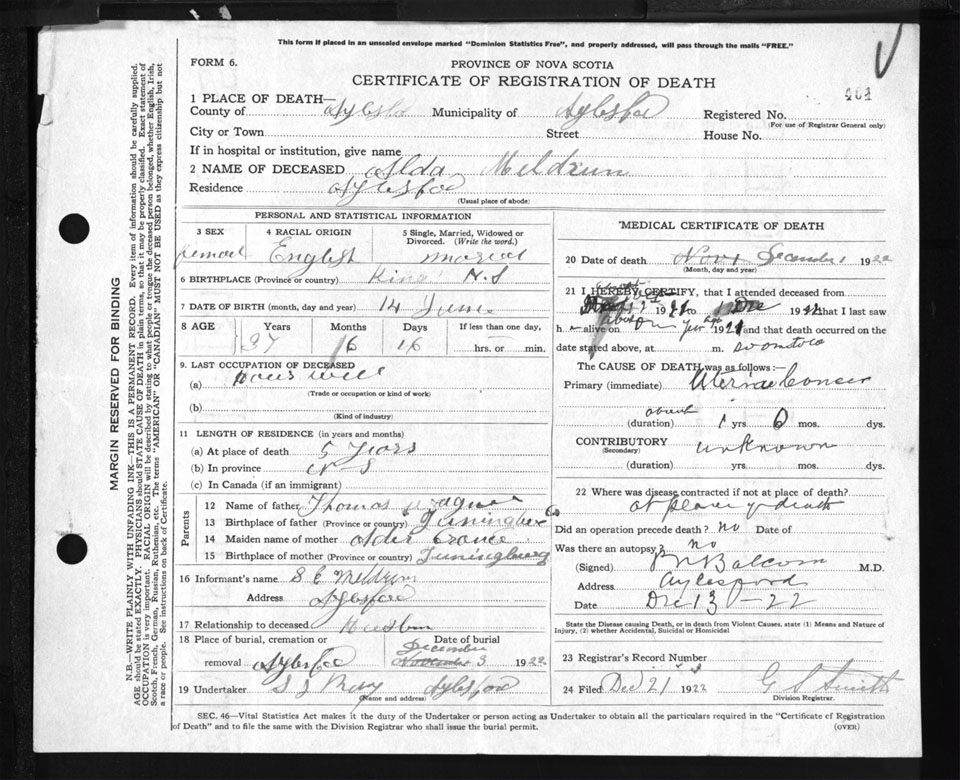 This form if placed in an unsealed envelope marked "Dominion Statistics Free", and properly addressed, will pass through the mails "FREE."
FORM 6.
PROVINCE OF NOVA SCOTIA
CERTIFICATE OF REGISTRATION OF DEATH
1 PLACE OF DEATH—
County of Municipality of Aylesfoe Registered No.
(For use of Registrar General only)
City or Town Street House No.
If in hospital or institution, give name
2 NAME OF DECEASED Alda Meldrum
Residence Aylesfoe
(Usual place of abode)
PERSONAL AND STATISTICAL INFORMATION
3 SEX 4 RACIAL ORIGIN 5 Single, Married, Widowed or Divorced. (Write the word.)
English
6 BIRTHPLACE (Province or country) King N.S
7 DATE OF BIRTH (month, day and year) 14 June
8 AGE Years Months Days If less than one day,
37 6 16 hrs. or min.
9. LAST OCCUPATION OF DECEASED
(a)
(Trade or occupation or kind of work)
(b)
(Kind of industry)
11 LENGTH OF RESIDENCE (in years and months)
(a) At place of death 5 Years
(b) In province N S
(c) In Canada (if an immigrant)
Parents
12 Name of father Thomas
13 Birthplace of father (Province or country) Co
14 Maiden name of mother
15 Birthplace of mother (Province or country)
16 Informant's name S E Meldrum
Address Aylesfoe
17 Relationship to deceased
18 Place of burial, cremation or removal Aylesfoe
Date of burial December November 3 1922
19 Undertaker S J Aylesfoe
(Name and address)
MEDICAL CERTIFICATE OF DEATH
20 Date of death Nov December 1 1922
(Month, day and year)
21 I HEREBY CERTIFY, that I attended deceased from
19 to Dec 19 that I last saw
h alive on 19 and that death occurred on
date stated above, at m.
The CAUSE OF DEATH was as follows:
Primary (immediate) Uterine Cancer
about
(duration) 1 yrs 6 mos. dys.
CONTRIBUTORY unknown
(Secondary)
(duration) yrs. mos. dys.
22 Where was disease contracted if not at place of death?
at place of death
Did an operation precede death? no Date of
Was there an autopsy? no
(Signed) Balcom M.D.
Address Aylesford
Date Dec 13 - 22
State the Disease causing Death, or in death from Violent Causes, state (1) Means and Nature of Injury, (2) whether Accidental, Suicidal or Homicidal
23 Registrar's Record Number
24 Filed Dec 21 1922 G S Smith
Division Registrar.
SEC. 46—Vital Statistics Act makes it the duty of the Undertaker or person acting as Undertaker to obtain all the particulars required in the "Certificate of Registration
of Death" and to file the same with the Division Registrar who shall issue the burial permit. (OVER)
MARGIN RESERVED FOR BINDING
N.B.—WRITE PLAINLY WITH UNFADING INK—THIS IS A PERMANENT RECORD. Every item of information should be carefully supplied.
AGE should be stated EXACTLY. PHYSICIANS should STATE CAUSE OF DEATH in plain terms, so that it may be properly classified. Exact statement of
OCCUPATION is very important. RACIAL ORIGIN will be described by stating to what people or tongue the deceased person belonged, whether English, Irish,
Scotch, French, German, Russian, Ruthenian, etc. The terms "AMERICAN" OR "CANADIAN" MUST NOT BE USED as they express citizenship but not
a race or people. See instructions on back of Certificate.